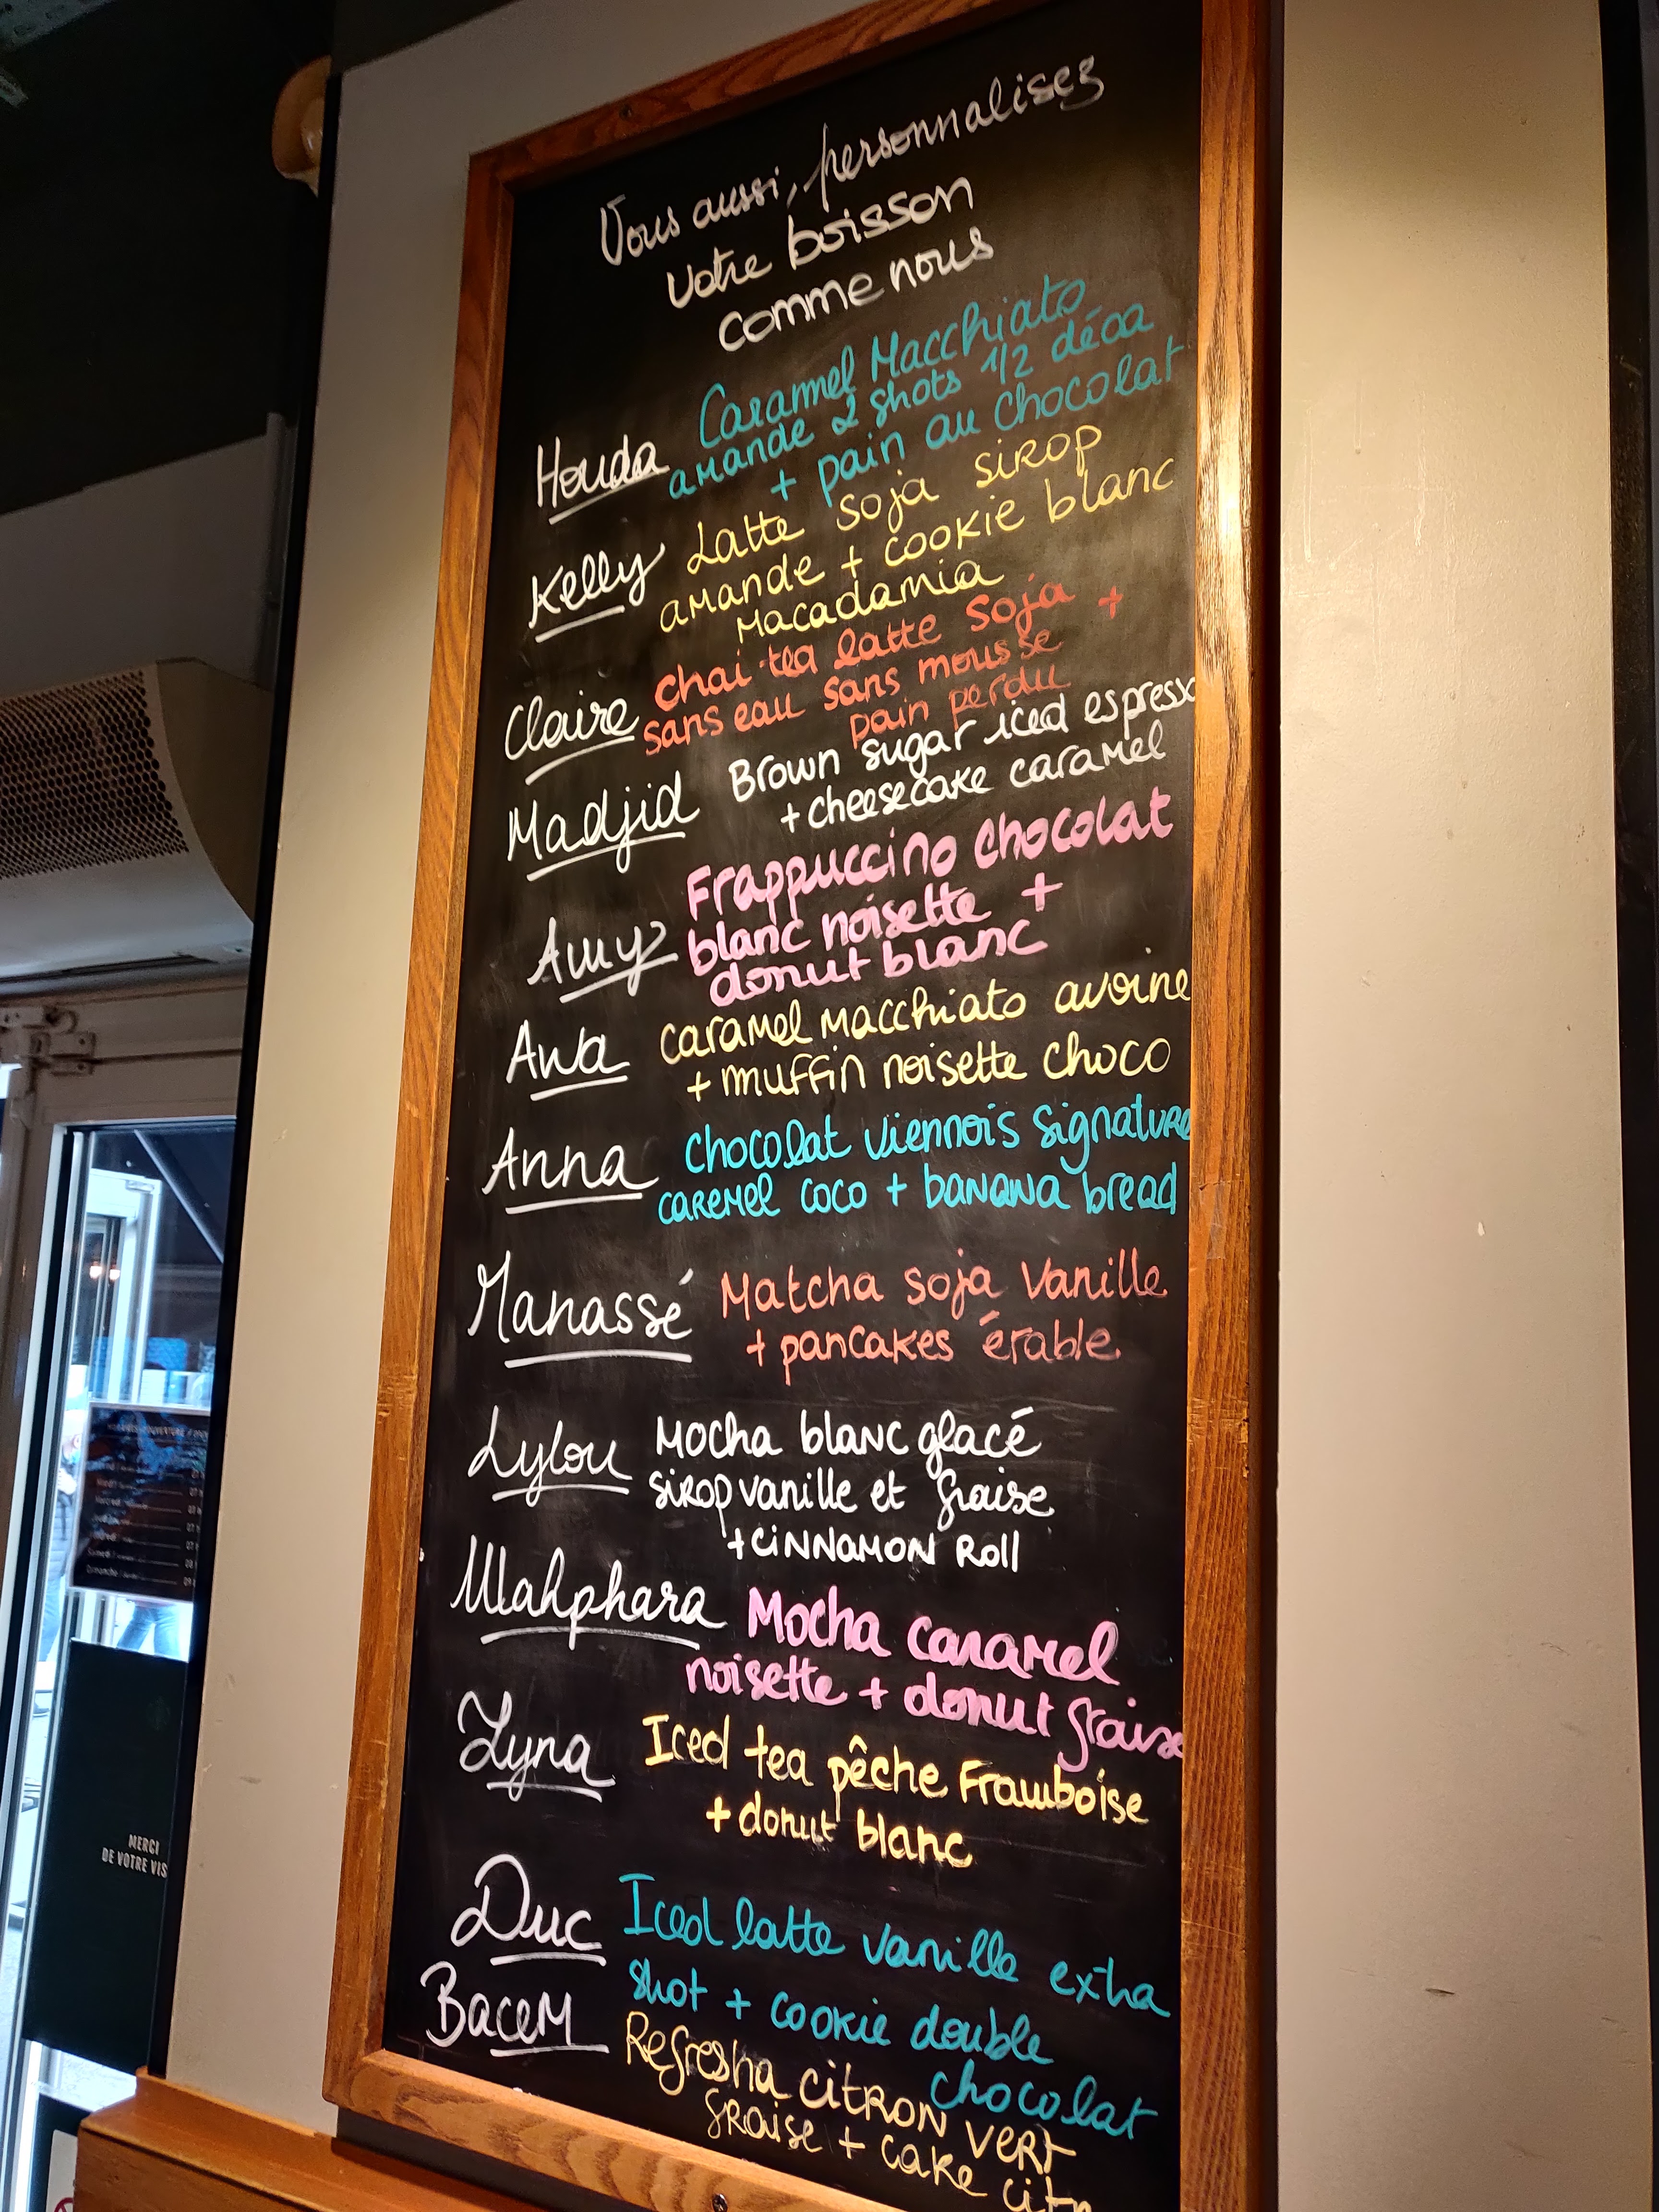 Vous aussi, personnalisez
votre boisson
comme nous
Houda
Caramel Macchiato
amande 2 shots 1/2 déca
+ pain au chocolat
Kelly
Latte soja sirop
amande + cookie blanc
Macadamia
Claire
chai tea latte soja
sans eau sans mousse +
pain perdu
Madjid
Brown sugar iced espresso
+ cheesecake caramel
Amy
Frappuccino chocolat
blanc noisette +
donut blanc
Awa
Caramel Macchiato avoine
+ muffin noisette choco
Anna
Chocolat viennois signature
caremel coco + banana bread
Manassé
Matcha soja vanille
+ pancakes érable
Lylou
Mocha blanc glacé
sirop vanille et fraise
+ cinnamon roll
Mahphara
Mocha caramel
noisette + donut fraise
Lyna
Iced tea pêche Framboise
+ donut blanc
Duc
Iced latte vanille extra
shot + cookie double
chocolat
Bacem
Refresha citron vert
fraise + cake citr
MERCI
DE VOTRE VIS